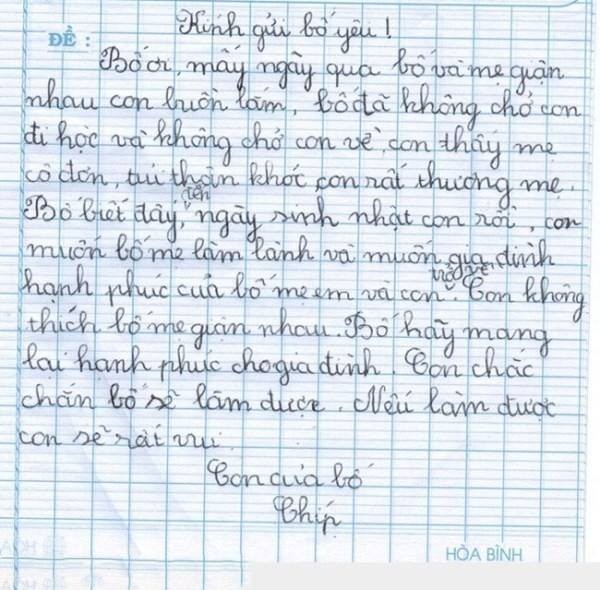 Kính gửi bố yêu!
ĐỀ:
Bố ơi, mấy ngày qua bố và mẹ giận
nhau con buồn lắm, bố đã không chở con
đi học và không chở con về, con thấy mẹ
cô đơn, tủi thân khóc con rất thương mẹ.
Bố biết đấy, đến ngày sinh nhật con rồi, con
muốn bố mẹ làm lành và muốn gia đình
hạnh phúc của bố mẹ em và con trở về. Con không
thích bố mẹ giận nhau. Bố hãy mang
lại hạnh phúc cho gia đình. Con chắc
chắn bố sẽ làm được. Nếu làm được
con sẽ rất vui.
Con của bố
Chíp
HÒA BÌNH